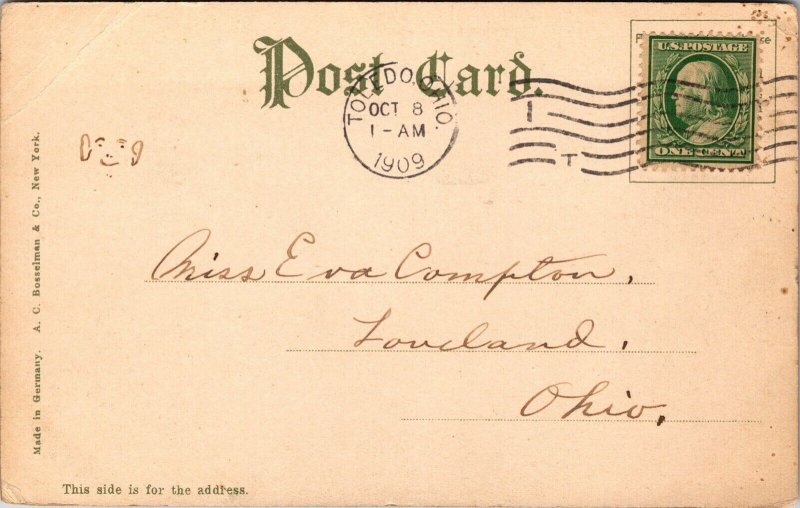 Post Card.
TOLEDO, OHIO.
OCT 8
1-AM
1909
U.S. POSTAGE
ONE CENT
Miss Eva Compton,
Loveland.
Ohio,
Made in Germany. A. C. Bosselman & Co., New York.
This side is for the address.